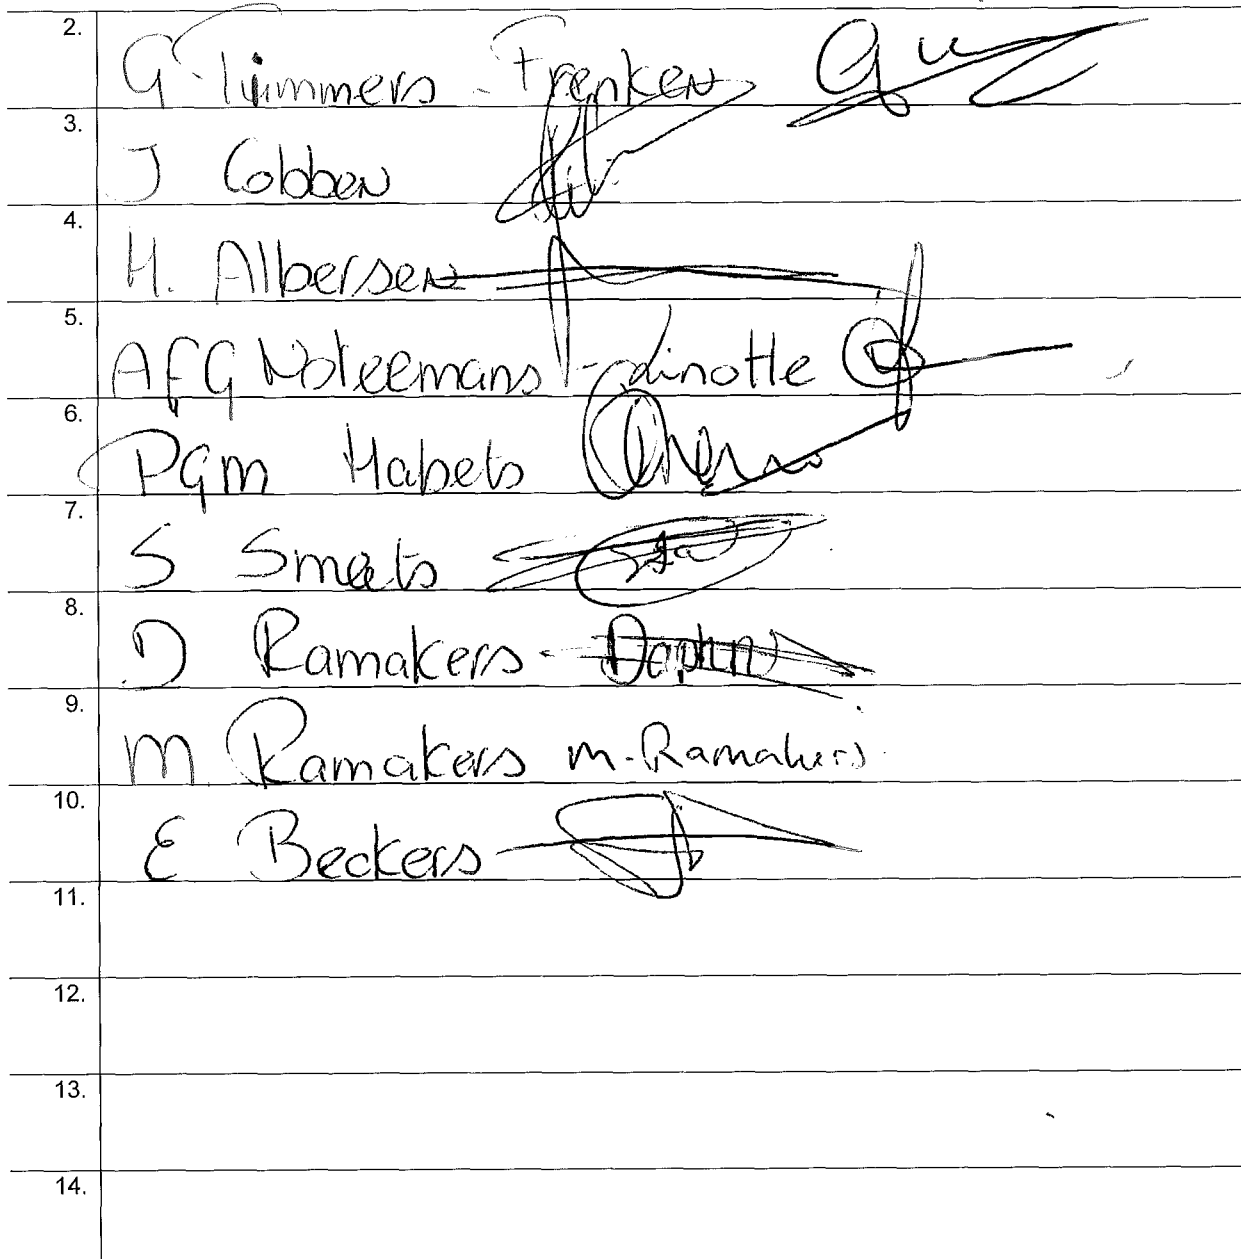 2. G Timmers - Frenken
3. J Cobben
4. H. Albersen
5. AFG Noteemans - Linotte
6. PGM Habets
7. S Smeets
8. D Ramakers - Daphn
9. M Ramakers M. Ramakers
10. E Beckers
11.
12.
13.
14.